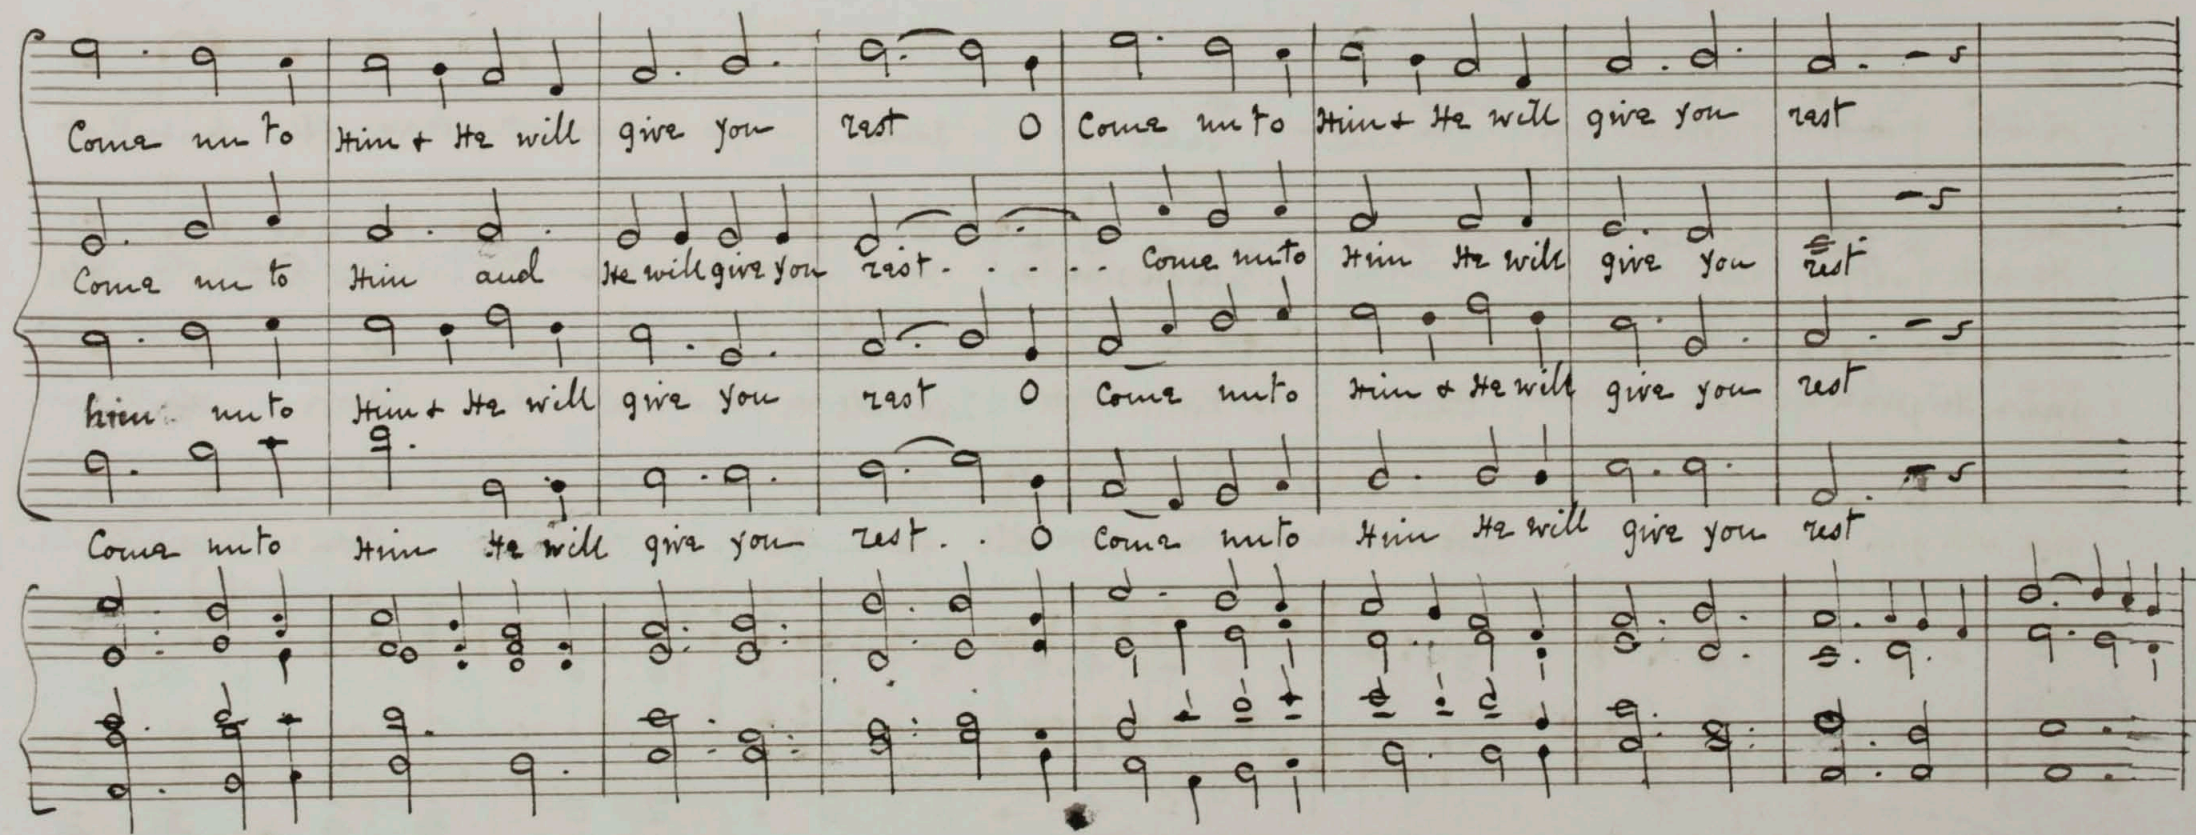 Come un to Him & He will give you rest O Come un to Him & He will give you rest
Come un to Him and He will give you rest. . . . . . Come unto Him He will give you rest
unto Him & He will give you rest O Come unto Him & He will give you rest
Come unto Him He will give you rest. . O Come unto Him He will give you rest